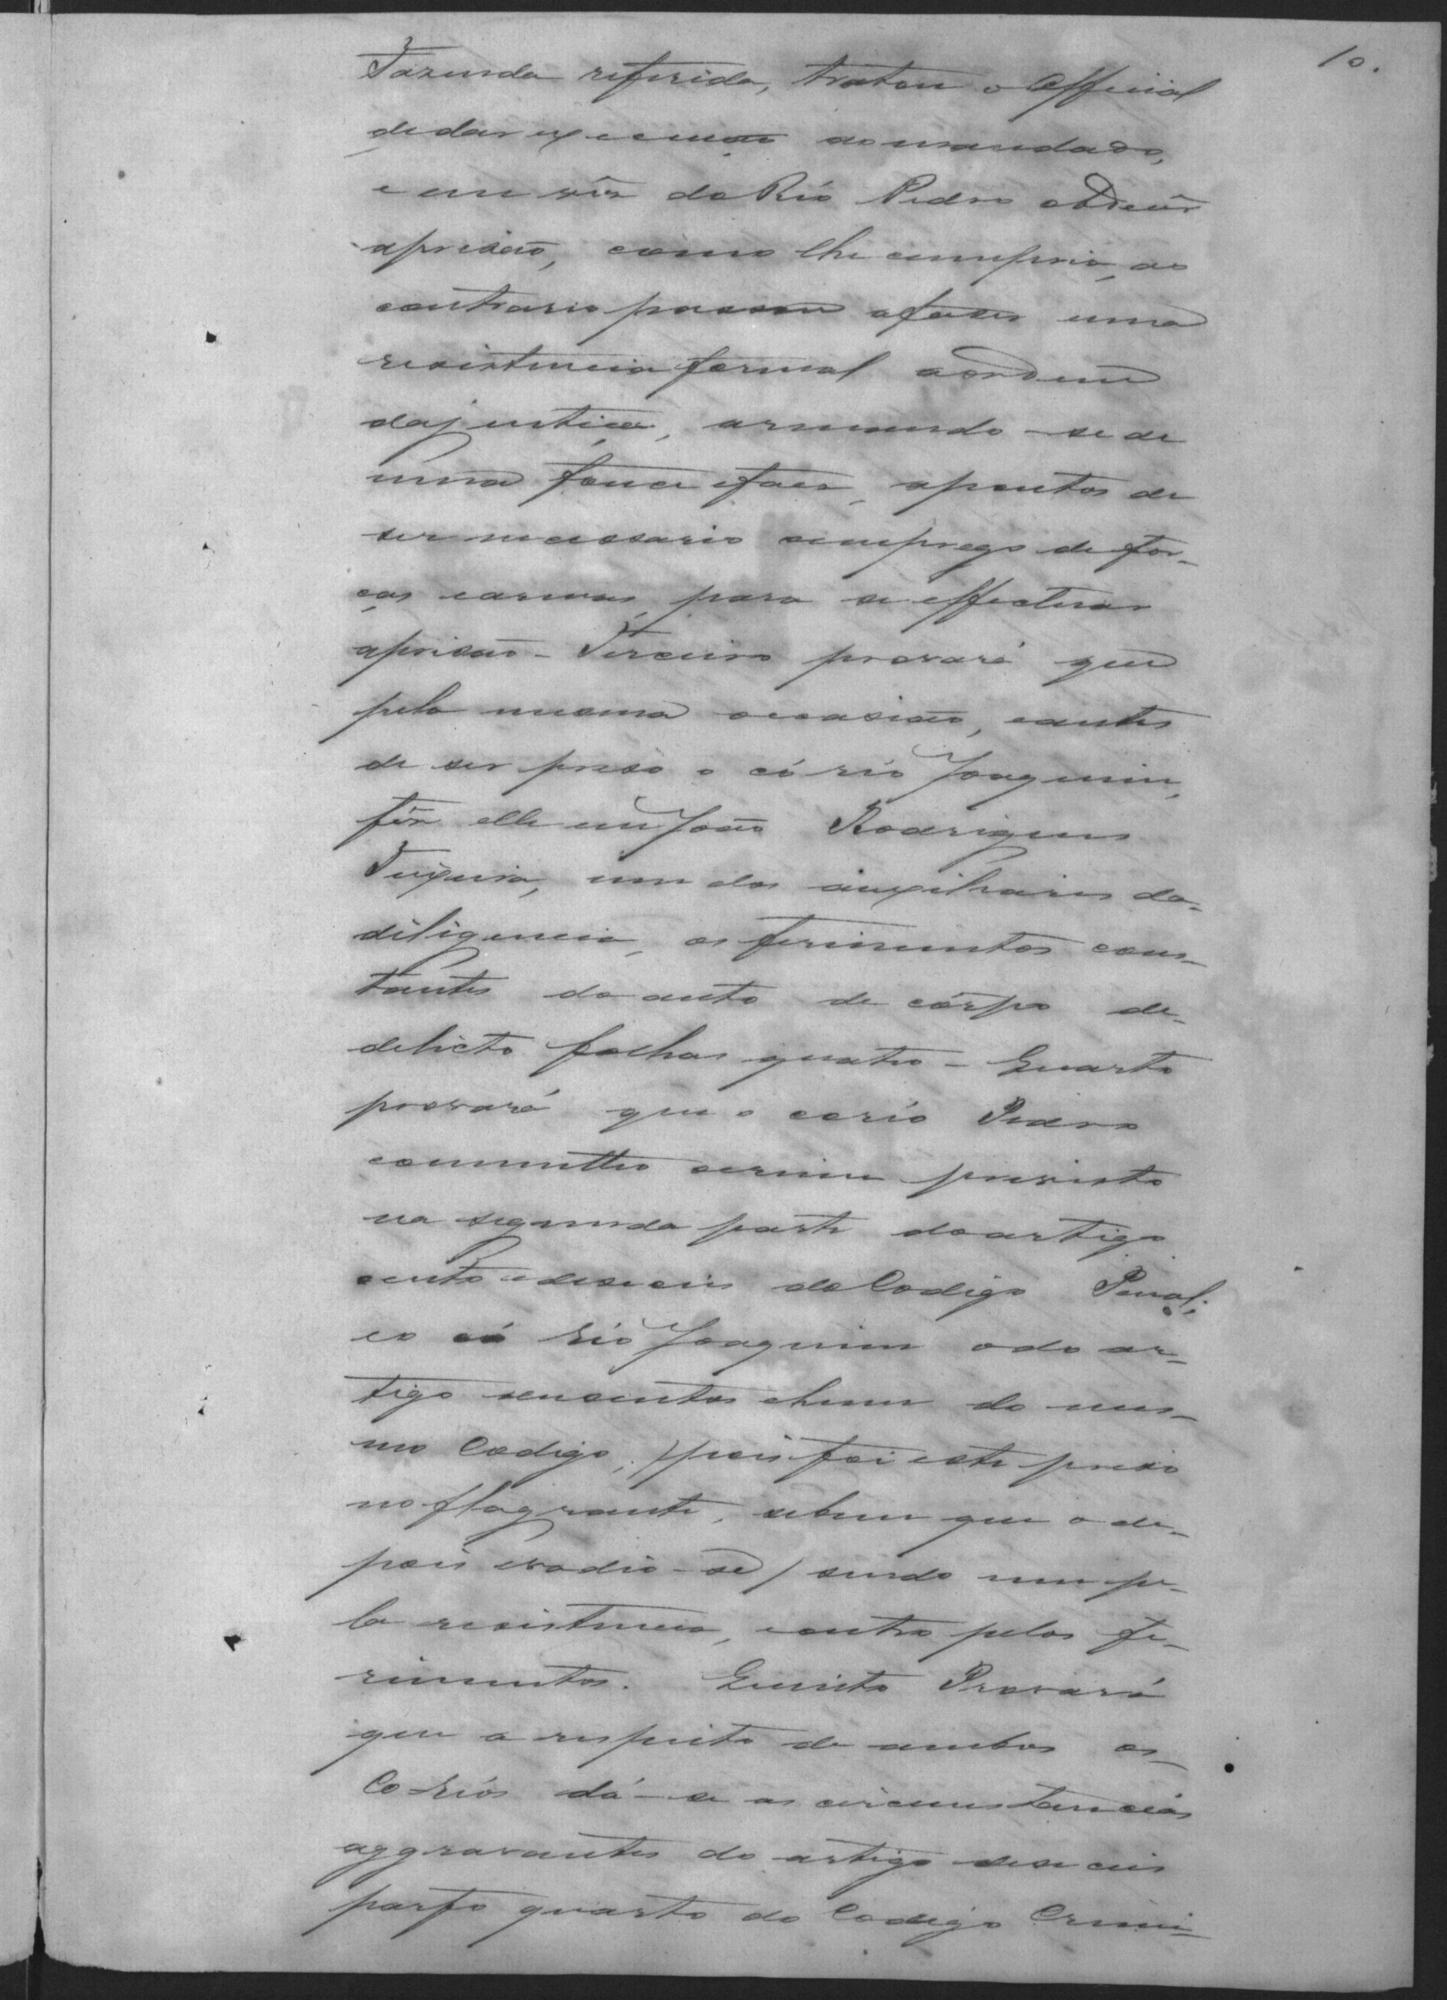 10.
Fazenda referida, tratou o Official
de dar execucao ao mandado,
e em vêz do Réo Pedro obdecêr
a prisão, como lhe cumpria, ao
contrario passou a faser uma
resistencia formal a ordem
da justiça, armando-se de
uma fouce e faca, a pontos de
ser necessario o emprego de for-
ças para se effectuar
a prisão - Terceiro provará que
pela mesma occasião, e antes
de ser preso o có réo Joaquim,
fêz elle em João Rodrigues
Teixeira, um dos auxiliares da
diligencia, os ferimentos cons-
tantes do auto de côrpo de
delicto folhas quatro - Quarto
provará que o coréo Pedro
commetteo o crime previsto
na segunda parte do artigo
cento e deseceis do Codigo Penal;
e o có Réo Joaquim o do ar-
tigo dusentos e hum do mes-
mo Codigo, (pois foi este preso
no flagrante, se bem que o de-
pois evadio-se) sendo um pe-
la resistencia, e outro pelos fe-
rimentos. Quinto Provará
que a respeito de ambos os
Co-Réos dá-se as circumstancias
aggravantes do artigo deseceis
parfo quarto do Codigo Crimi-